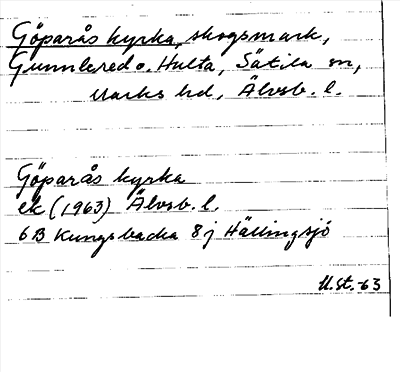 Göparås kyrka, skogsmark,
Gunnlered o. Hulta, Sätila sn,
Marks hd, Älvsb. l.
Göparås kyrka
ek (1963) Älvsb. l.
6B Kungsbacka 8j Hällingsjö
U.st.-63